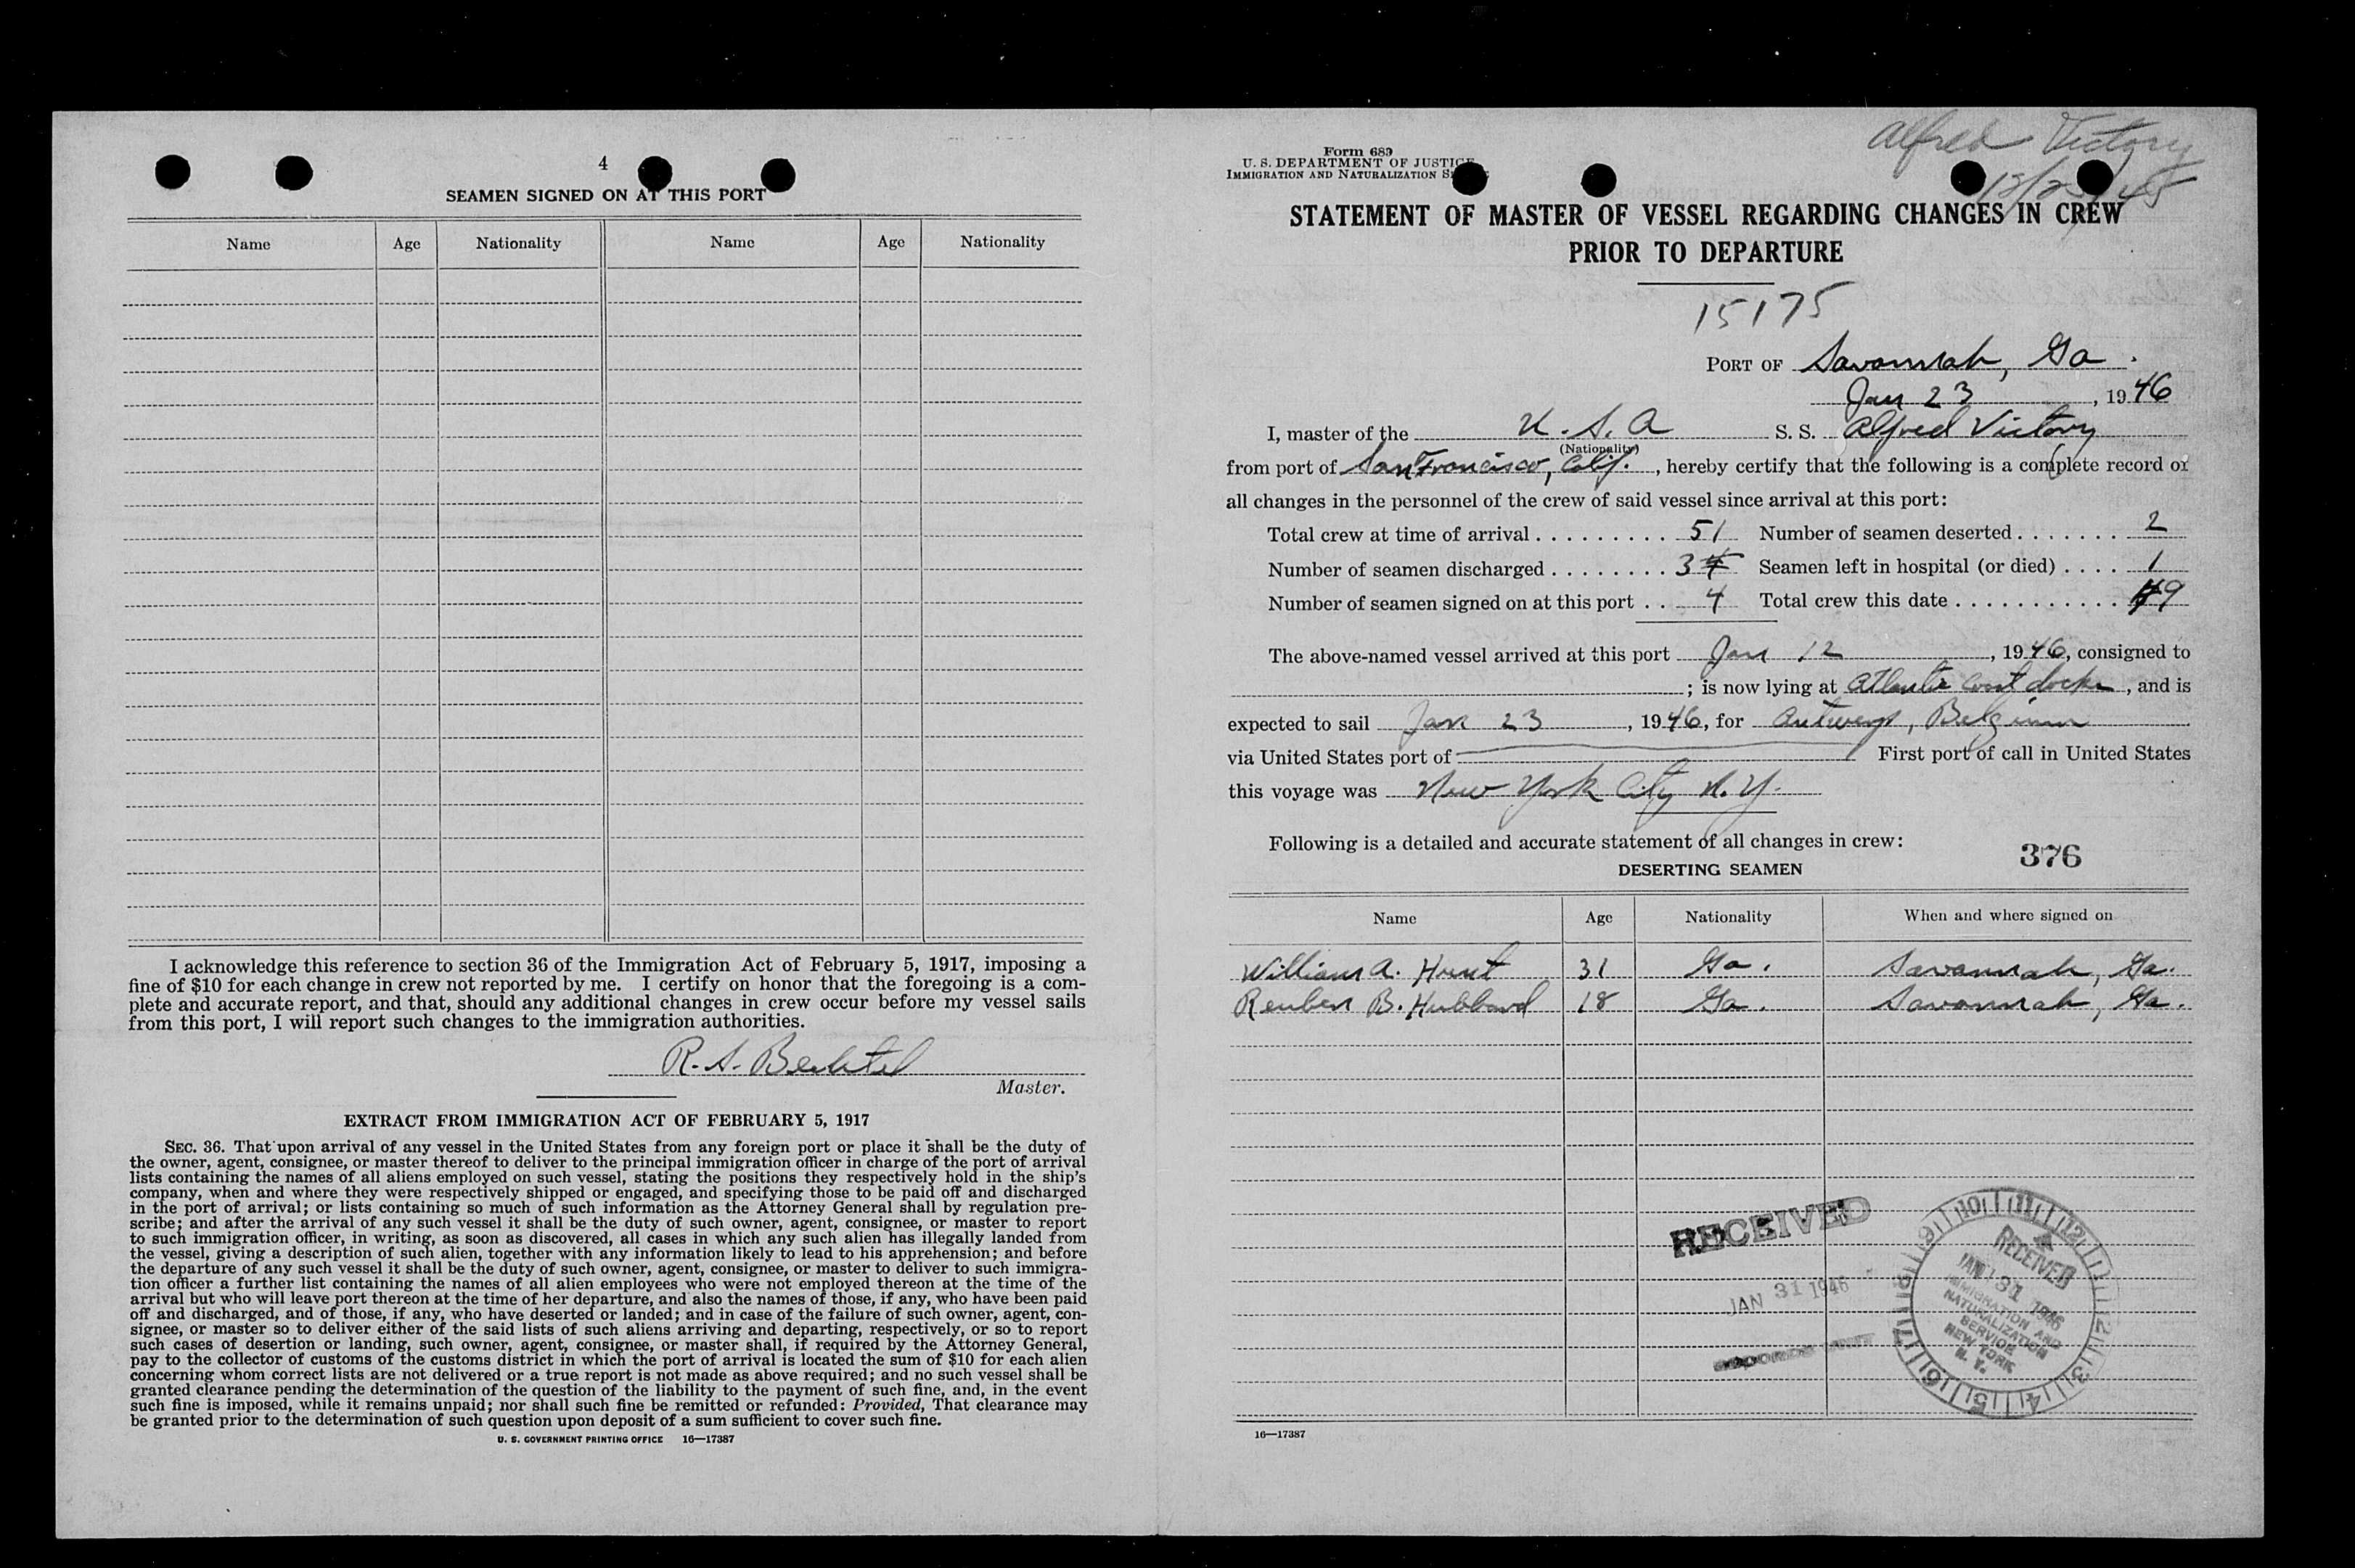 4
SEAMEN SIGNED ON AT THIS PORT
Name Age Nationality Name Age Nationality
I acknowledge this reference to section 36 of the Immigration Act of February 5, 1917, imposing a
fine of $10 for each change in crew not reported by me. I certify on honor that the foregoing is a com-
plete and accurate report, and that, should any additional changes in crew occur before my vessel sails
from this port, I will report such changes to the immigration authorities.
R. S. Bechtel
Master.
EXTRACT FROM IMMIGRATION ACT OF FEBRUARY 5, 1917
SEC. 36. That upon arrival of any vessel in the United States from any foreign port or place it shall be the duty of
the owner, agent, consignee, or master thereof to deliver to the principal immigration officer in charge of the port of arrival
lists containing the names of all aliens employed on such vessel, stating the positions they respectively hold in the ship's
company, when and where they were respectively shipped or engaged, and specifying those to be paid off and discharged
in the port of arrival; or lists containing so much of such information as the Attorney General shall by regulation pre-
scribe; and after the arrival of any such vessel it shall be the duty of such owner, agent, consignee, or master to report
to such immigration officer, in writing, as soon as discovered, all cases in which any such alien has illegally landed from
the vessel, giving a description of such alien, together with any information likely to lead to his apprehension; and before
the departure of any such vessel it shall be the duty of such owner, agent, consignee, or master to deliver to such immigra-
tion officer a further list containing the names of all alien employees who were not employed thereon at the time of the
arrival but who will leave port thereon at the time of her departure, and also the names of those, if any, who have been paid
off and discharged, and of those, if any, who have deserted or landed; and in case of the failure of such owner, agent, con-
signee, or master so to deliver either of the said lists of such aliens arriving and departing, respectively, or so to report
such cases of desertion or landing, such owner, agent, consignee, or master shall, if required by the Attorney General,
pay to the collector of customs of the customs district in which the port of arrival is located the sum of $10 for each alien
concerning whom correct lists are not delivered or a true report is not made as above required; and no such vessel shall be
granted clearance pending the determination of the question of the liability to the payment of such fine, and, in the event
such fine is imposed, while it remains unpaid; nor shall such fine be remitted or refunded: Provided, That clearance may
be granted prior to the determination of such question upon deposit of a sum sufficient to cover such fine.
U. S. GOVERNMENT PRINTING OFFICE 16—17387
Alfred Victory
Form 689
U. S. DEPARTMENT OF JUSTICE
IMMIGRATION AND NATURALIZATION
STATEMENT OF MASTER OF VESSEL REGARDING CHANGES IN CREW
PRIOR TO DEPARTURE
15175
PORT OF Savannah, Ga.
Jan 23, 1946
I, master of the U.S.A S. S. Alfred Victory
(Nationality)
from port of San Francisco, Calif., hereby certify that the following is a complete record of
all changes in the personnel of the crew of said vessel since arrival at this port:
Total crew at time of arrival . . . . . . . . . 51 Number of seamen deserted . . . . . . . 2
Number of seamen discharged . . . . . . . . 3 Seamen left in hospital (or died) . . . . 1
Number of seamen signed on at this port . . 4 Total crew this date . . . . . . . . . . . 49
The above-named vessel arrived at this port Jan 12, 1946, consigned to
; is now lying at Atlantic Coast docks, and is
expected to sail Jan 23, 1946, for Antwerp, Belgium
via United States port of First port of call in United States
this voyage was New York City N.Y.
Following is a detailed and accurate statement of all changes in crew:
376
DESERTING SEAMEN
Name Age Nationality When and where signed on
William A. Hunt 31 Ga. Savannah, Ga.
Reuben B. Hubbard 18 Ga. Savannah, Ga.
RECEIVED
JAN 31 1946
RECEIVED
JAN 31 1946
IMMIGRATION AND
NATURALIZATION
SERVICE
NEW YORK
N. Y.
16—17387